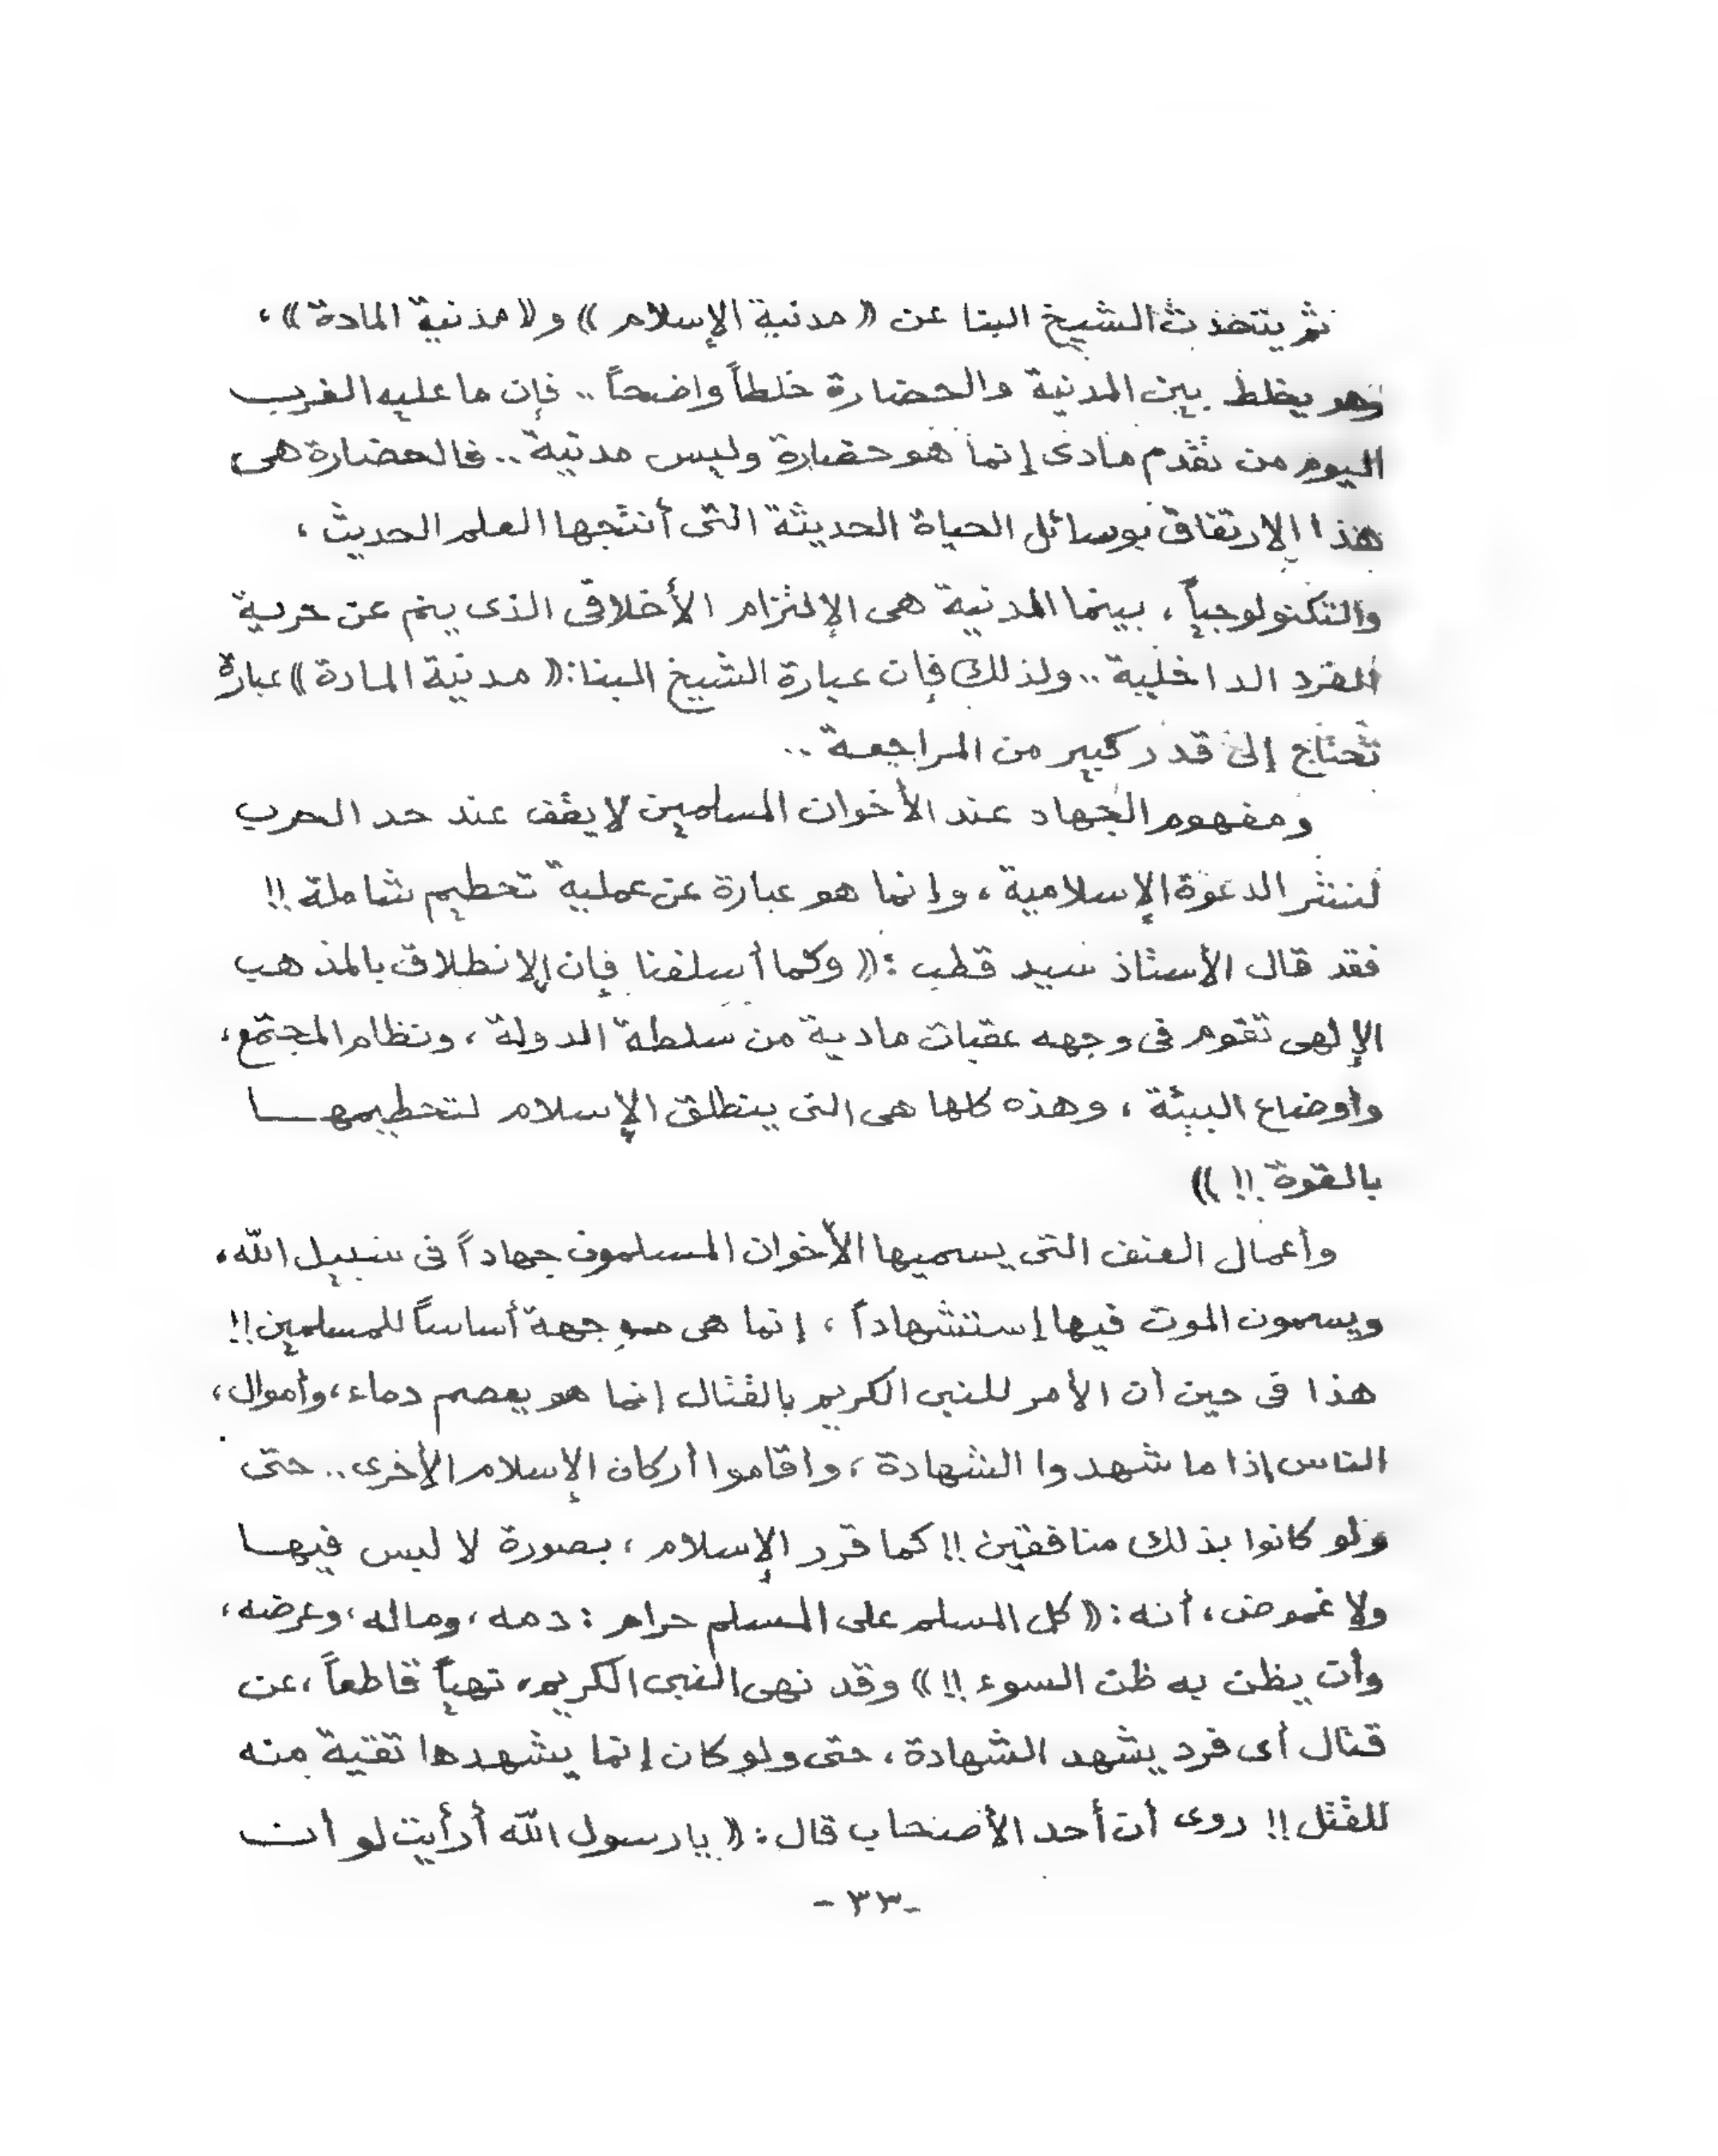 ثم يتحدث الشيخ البنا عن «مدنية الإسلام» و«مدنية المادة»،
وهو يخلط بين المدنية والحضارة خلطاً واضحاً .. فإن ما عليه الغرب
اليوم من تقدم مادى إنما هو حضارة وليس مدنية .. فالحضارة هى
هذا الإرتفاق بوسائل الحياة الحديثة التى أنتجها العلم الحديث،
والتكنولوجيا، بينما المدنية هى الإلتزام الأخلاقى الذى ينم عن حرية
الفرد الداخلية .. ولذلك فإن عبارة الشيخ البنا: «مدنية المادة» عبارة
تحتاج إلى قدر كبير من المراجعة ..
ومفهوم الجهاد عند الأخوان المسلمين لا يقف عند حد الحرب
لنشر الدعوة الإسلامية، وإنما هو عبارة عن عملية تحطيم شاملة !!
فقد قال الأستاذ سيد قطب : «وكما أسلفنا فإن الإنطلاق بالمذهب
الإلهى تقوم فى وجهه عقبات مادية من سلطة الدولة، ونظام المجتمع،
وأوضاع البيئة، وهذه كلها هى التى ينطلق الإسلام لتحطيمها
بالقوة !! »
وأعمال العنف التى يسميها الأخوان المسلمون جهاداً فى سبيل الله،
ويسمون الموت فيها إستشهاداً، إنما هى موجهة أساساً للمسلمين !!
هذا فى حين أن الأمر للنبى الكريم بالقتال إنما هو يعصم دماء، وأموال،
الناس إذا ما شهدوا الشهادة، وأقاموا أركان الإسلام الأخرى .. حتى
ولو كانوا بذلك منافقين !! كما قرر الإسلام، بصورة لا لبس فيها
ولا غموض، أنه : «كل المسلم على المسلم حرام : دمه، وماله، وعرضه،
وأن يظن به ظن السوء !! » وقد نهى النبى الكريم، نهياً قاطعاً، عن
قتال أى فرد يشهد الشهادة، حتى ولو كان إنما يشهدها تقية منه
للقتل !! روى أن أحد الأصحاب قال : «يا رسول الله أرأيت لو أن
- ٣٣ -